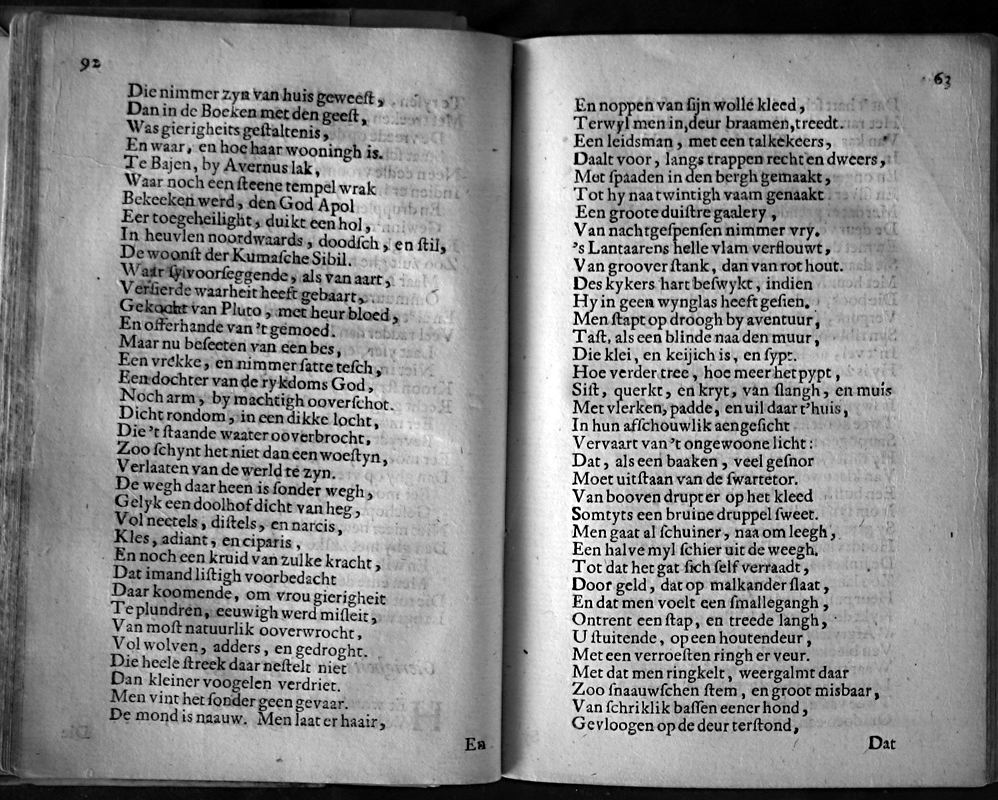 92
Die nimmer zyn van huis geweeſt,
Dan in de Boeken met den geeſt,
Was gierigheits geſtaltenis,
En waar, en hoe haar wooningh is.
Te Bajen, by Avernus lak,
Waar noch een ſteene tempel wrak
Bekeeken werd, den God Apol
Eer toegeheilight, duikt een hol,
In heuvlen noordwaards, doodſch, en ſtil,
De woonſt der Kumaſche Sibil.
Waar ſyivoorſeggende, als van aart,
Verſierde waarheit heeft gebaart,
Gekocht van Pluto, met heur bloed,
En offerhande van 't gemoed.
Maar nu beſeeten van een bes,
Een vrekke, en nimmer ſatte teſch,
Een dochter van de rykdoms God,
Noch arm, by machtigh ooverſchot.
Dicht rondom, in een dikke locht,
Die 't ſtaande waater ooverbrocht,
Zoo ſchynt het niet dan een woeſtyn,
Verlaaten van de werld te zyn.
De wegh daar heen is ſonder wegh,
Gelyk een doolhof dicht van heg,
Vol neetels, diſtels, en narcis,
Kles, adiant, en ciparis,
En noch een kruid van zulke kracht,
Dat imand liſtigh voorbedacht
Daar koomende, om vrou gierigheit
Te plundren, eeuwigh werd miſleit,
Van moſt natuurlik ooverwrocht,
Vol wolven, adders, en gedroght.
Die heele ſtreek daar neſtelt niet
Dan kleiner voogelen verdriet.
Men vint het ſonder geen gevaar.
De mond is naauw. Men laat er haair,
En
63
En noppen van ſijn wolle kleed,
Terwyl men in, deur braamen, treedt.
Een leidsman, met een talkekeers,
Daalt voor, langs trappen recht en dweers,
Met ſpaaden in den bergh gemaakt,
Tot hy naa twintigh vaam genaakt
Een groote duiſtre gaalery,
Van nachtgeſpenſen nimmer vry.
's Lantaarens helle vlam verflouwt,
Van groover ſtank, dan van rot hout.
Des kykers hart beſwykt, indien
Hy in geen wynglas heeft geſien.
Men ſtapt op droogh by aventuur,
Taſt, als een blinde naa den muur,
Die klei, en keijich is, en ſypt.
Hoe verder tree, hoe meer het pypt,
Siſt, querkt, en kryt, van ſlangh, en muis
Met vlerken, padde, en uil daar t'huis,
In hun afſchouwlik aengeſicht
Vervaart van 't ongewoone licht:
Dat, als een baaken, veel geſnor
Moet uitſtaan van de ſwartetor.
Van booven drupt er op het kleed
Somtyts een bruine druppel ſweet.
Men gaat al ſchuiner, naa om leegh,
Een halve myl ſchier uit de weegh.
Tot dat het gat ſich ſelf verraadt,
Door geld, dat op malkander ſlaat,
En dat men voelt een ſmallegangh,
Ontrent een ſtap, en treede langh,
U ſtuitende, op een houtendeur,
Met een verroeſten ringh er veur.
Met dat men ringkelt, weergalmt daar
Zoo ſnaauwſchen ſtem, en groot misbaar,
Van ſchriklik baſſen eener hond,
Gevloogen op de deur terſtond,
Dat